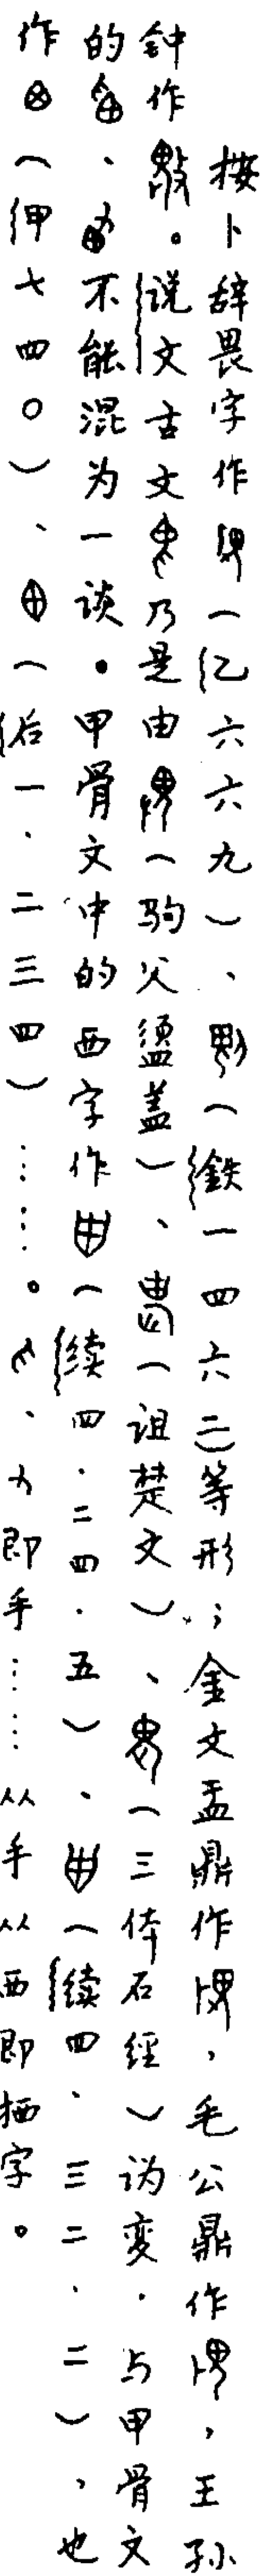 按卜辞畏字作（乙六六九）、（鉄一四六二）等形；金文盂鼎作，毛公鼎作，王孙
钟作。说文古文乃是由（驹父盨盖）、（诅楚文）、（三体石经）讹变．与甲骨文
的、不能混为一谈．甲骨文中的西字作（续四．二四．五）、（续四、三二、二），也
作（甲七四〇）、（后一、二三四）……。、即手……从手从西即栖字。